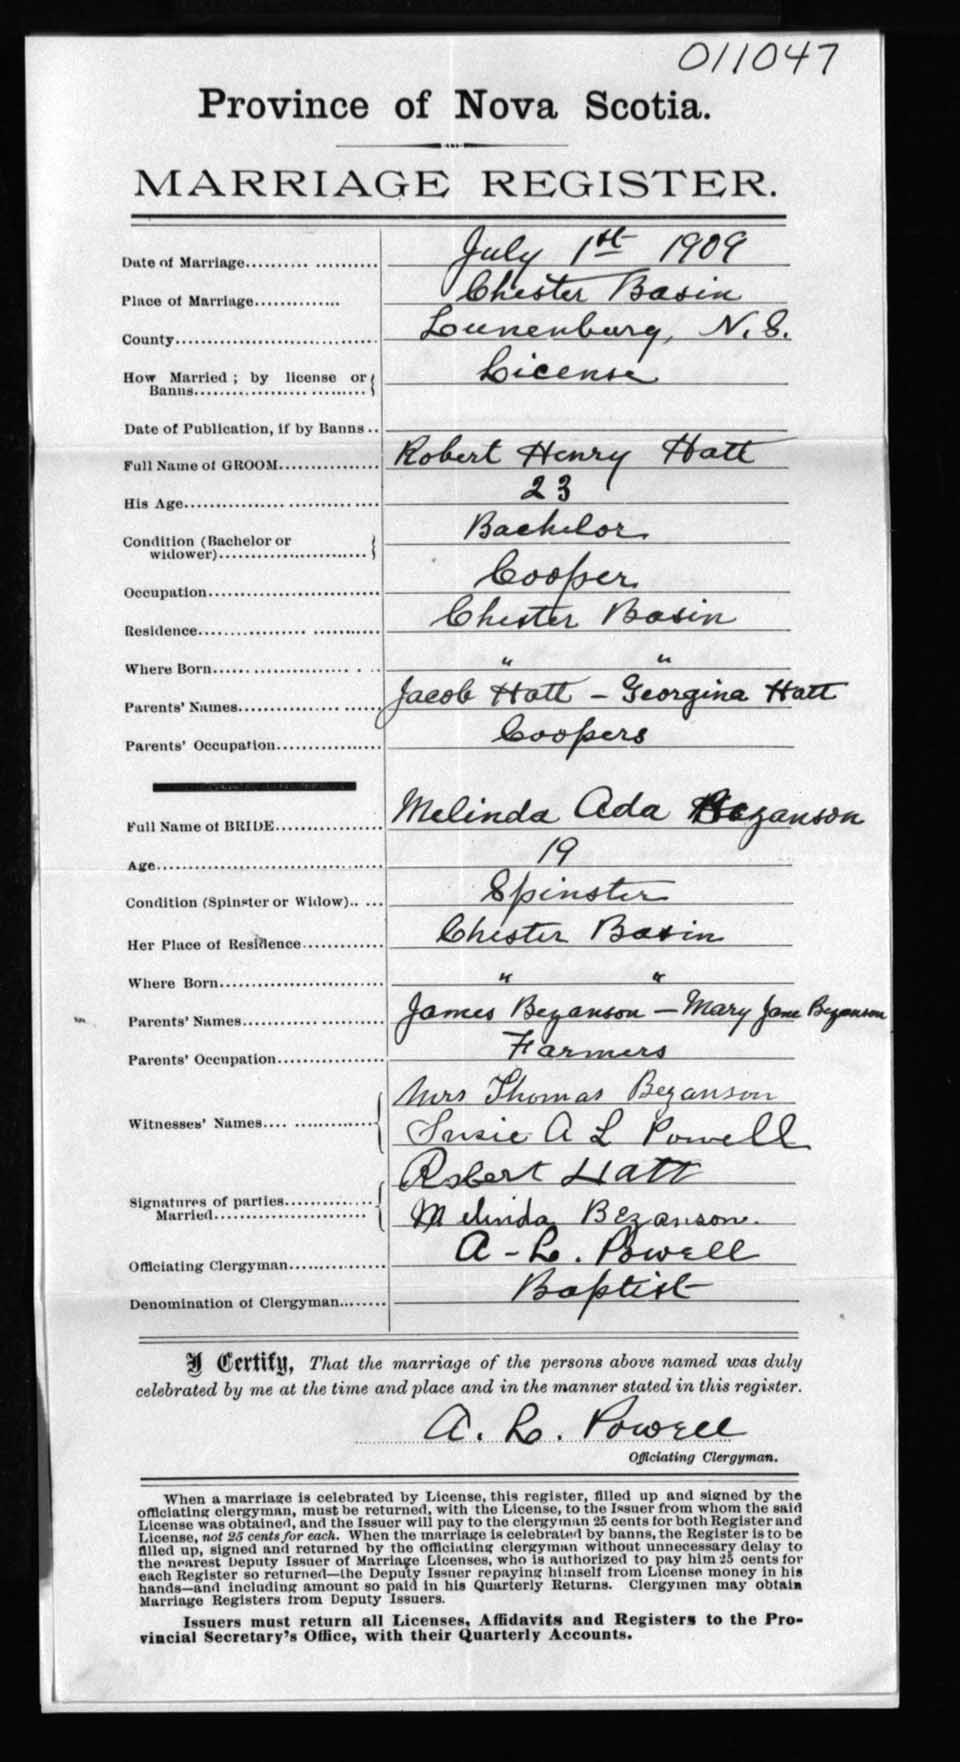 011047
Province of Nova Scotia.
MARRIAGE REGISTER.
Date of Marriage.......... ........... July 1st 1909
Place of Marriage............. Chester Basin
County.............................. Lunenburg, N.S.
How Married; by license or Banns.................. ......... } License
Date of Publication, if by Banns ..
Full Name of GROOM............... Robert Henry Hatt
His Age.................. ............... 23
Condition (Bachelor or widower)...................... } Bachelor
Occupation.......................... Cooper
Residence................. ........... Chester Basin
Where Born...................... . .. " "
Parents' Names............... ...... Jacob Hatt - Georgina Hatt
Parents' Occupation................ Coopers
Full Name of BRIDE................ Melinda Ada Bezanson
Age.................................. 19
Condition (Spinster or Widow).. ... Spinster
Her Place of Residence............ Chester Basin
Where Born......................... " "
Parents' Names.............. ....... James Bezanson - Mary Jane Bezanson
Parents' Occupation................ Farmers
Witnesses' Names.... ............. { Mrs Thomas Bezanson
Susie A L Powell
Signatures of parties............. Married....................... { Robert Hatt
Melinda Bezanson.
Officiating Clergyman............... A - L. Powell
Denomination of Clergyman........ Baptist
I Certify, That the marriage of the persons above named was duly
celebrated by me at the time and place and in the manner stated in this register.
A. L. Powell
Officiating Clergyman.
When a marriage is celebrated by License, this register, filled up and signed by the
officiating clergyman, must be returned, with the License, to the Issuer from whom the said
License was obtained, and the Issuer will pay to the clergyman 25 cents for both Register and
License, not 25 cents for each. When the marriage is celebrated by banns, the Register is to be
filled up, signed and returned by the officiating clergyman without unnecessary delay to
the nearest Deputy Issuer of Marriage Licenses, who is authorized to pay him 25 cents for
each Register so returned—the Deputy Issuer repaying himself from License money in his
hands—and including amount so paid in his Quarterly Returns. Clergymen may obtain
Marriage Registers from Deputy Issuers.
Issuers must return all Licenses, Affidavits and Registers to the Pro-
vincial Secretary's Office, with their Quarterly Accounts.